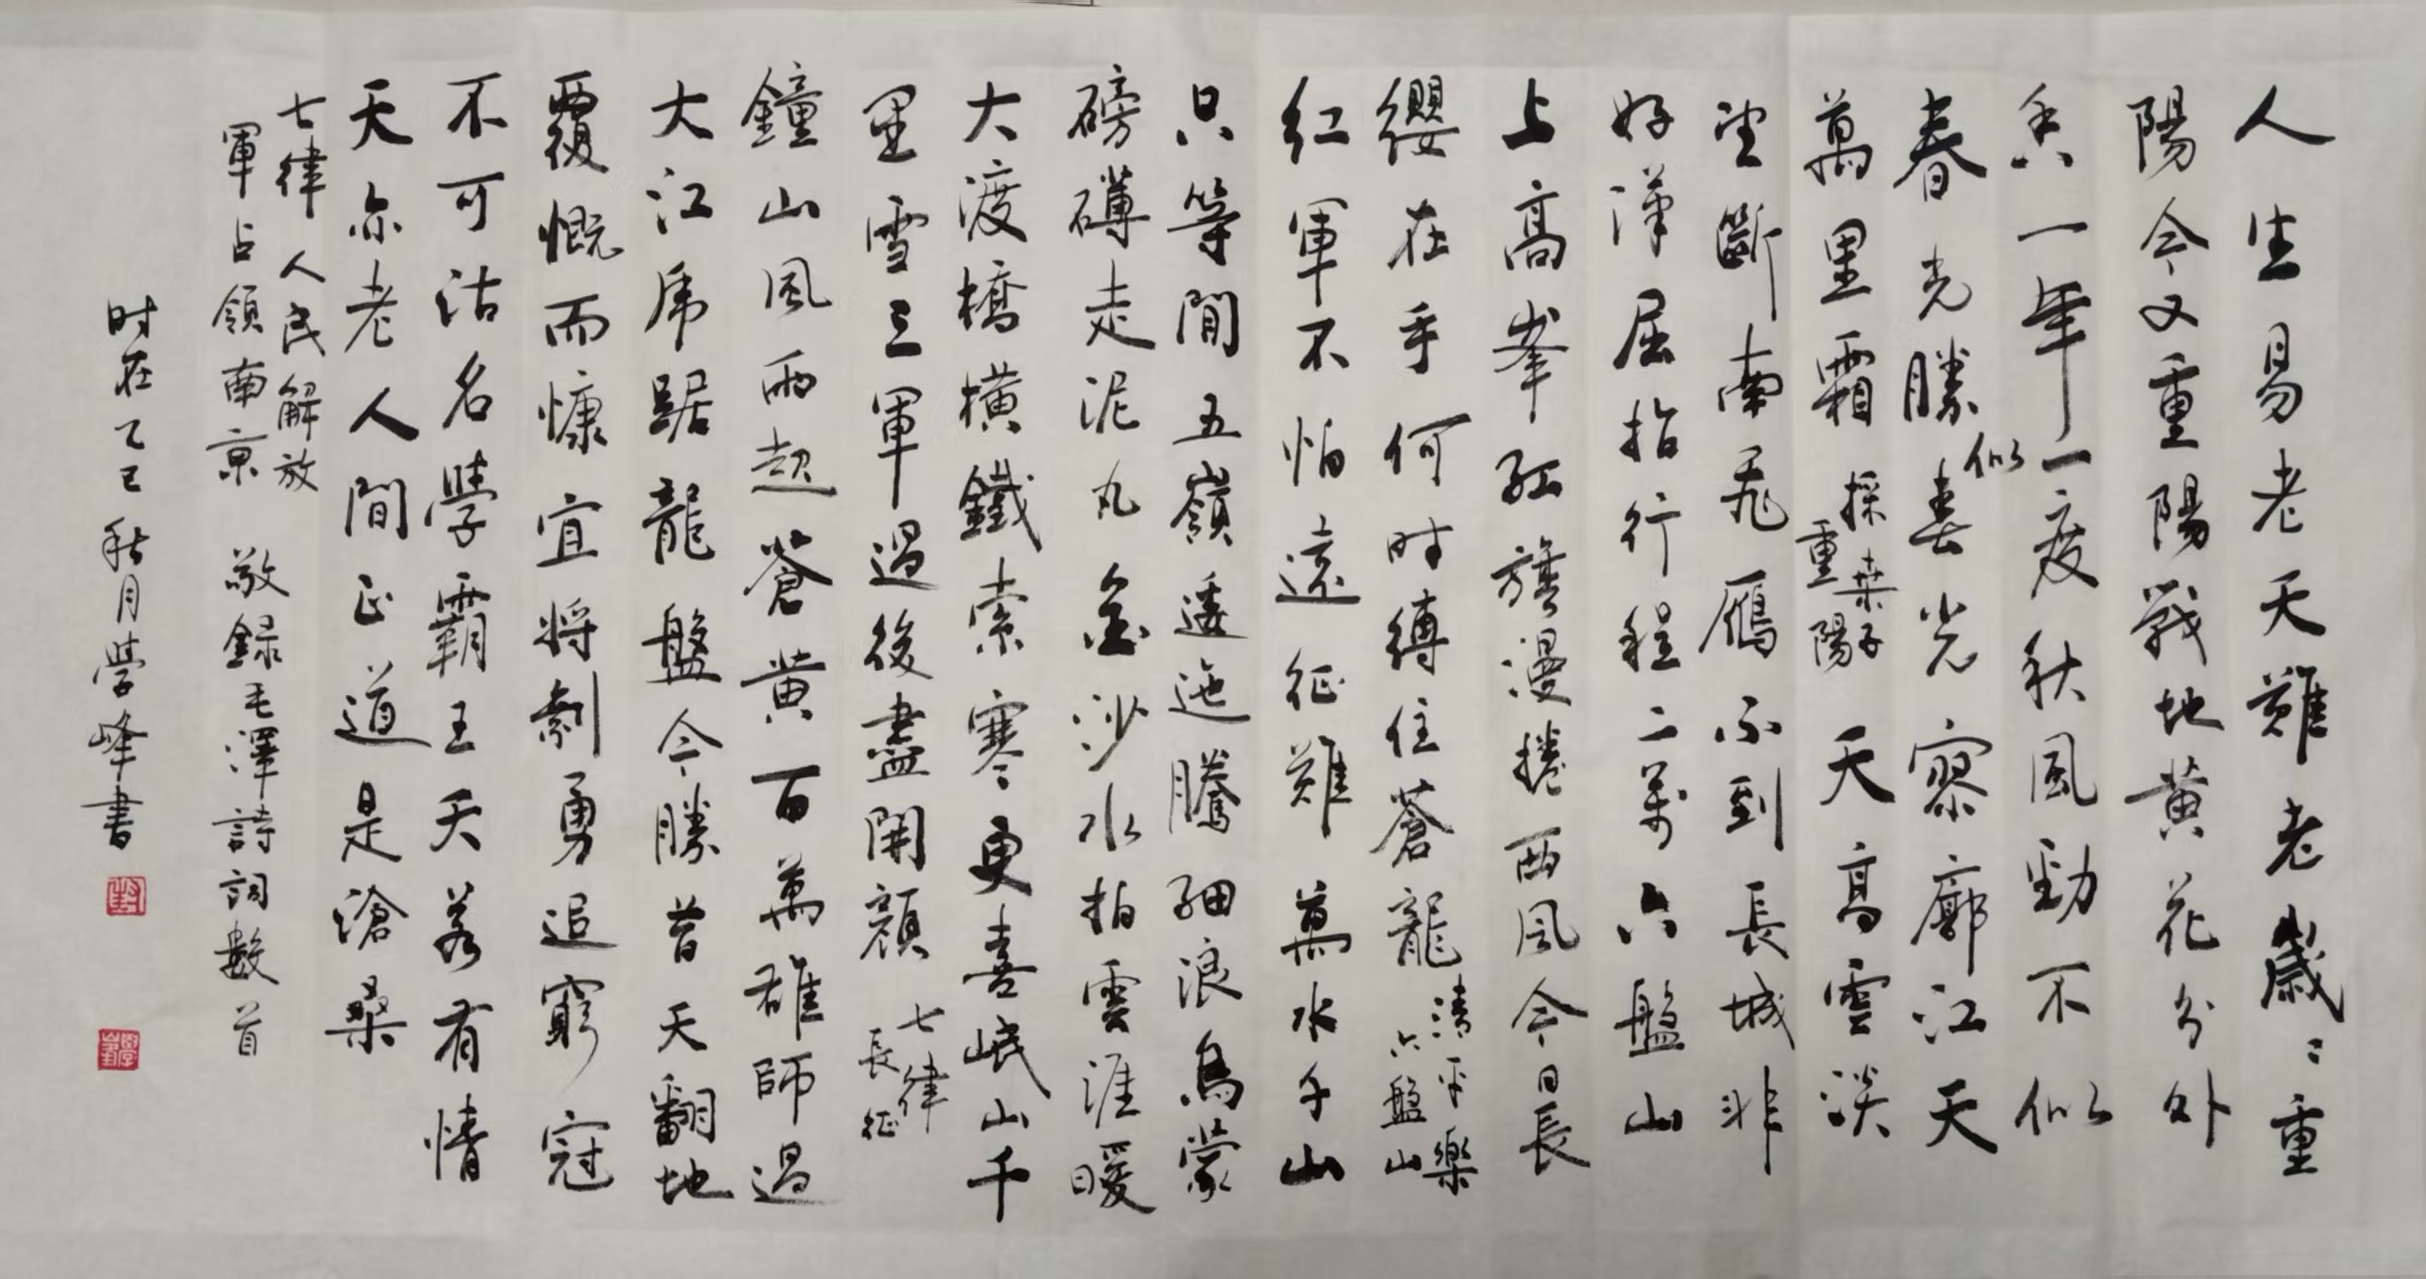 人生易老天難老歲〻重
陽今又重陽戰地黄花分外
香一年一度秋風勁不似
春光勝似春光寥廓江天
萬里霜 採桑子
重陽 天高雲淡
望斷南飛雁不到長城非
好漢屈指行程二萬六盤山
上高峯紅旗漫捲西風今日長
纓在手何時縛住蒼龍 清平樂
六盤山
紅軍不怕遠征難萬水千山
只等閒五嶺逶迤騰細浪烏蒙
磅礴走泥丸金沙水拍雲涯暖
大渡橋橫鐵索寒更喜岷山千
里雪三軍過後盡開顏 七律
長征
鐘山風雨起蒼黄百萬雄師過
大江虎踞龍盤今勝昔天翻地
覆慨而慷宜將剩勇追窮寇
不可沽名學霸王天若有情
天亦老人間正道是滄桑
七律 人民解放
軍占領南京 敬録毛澤詩詞數首
时在乙巳秋月学峰書